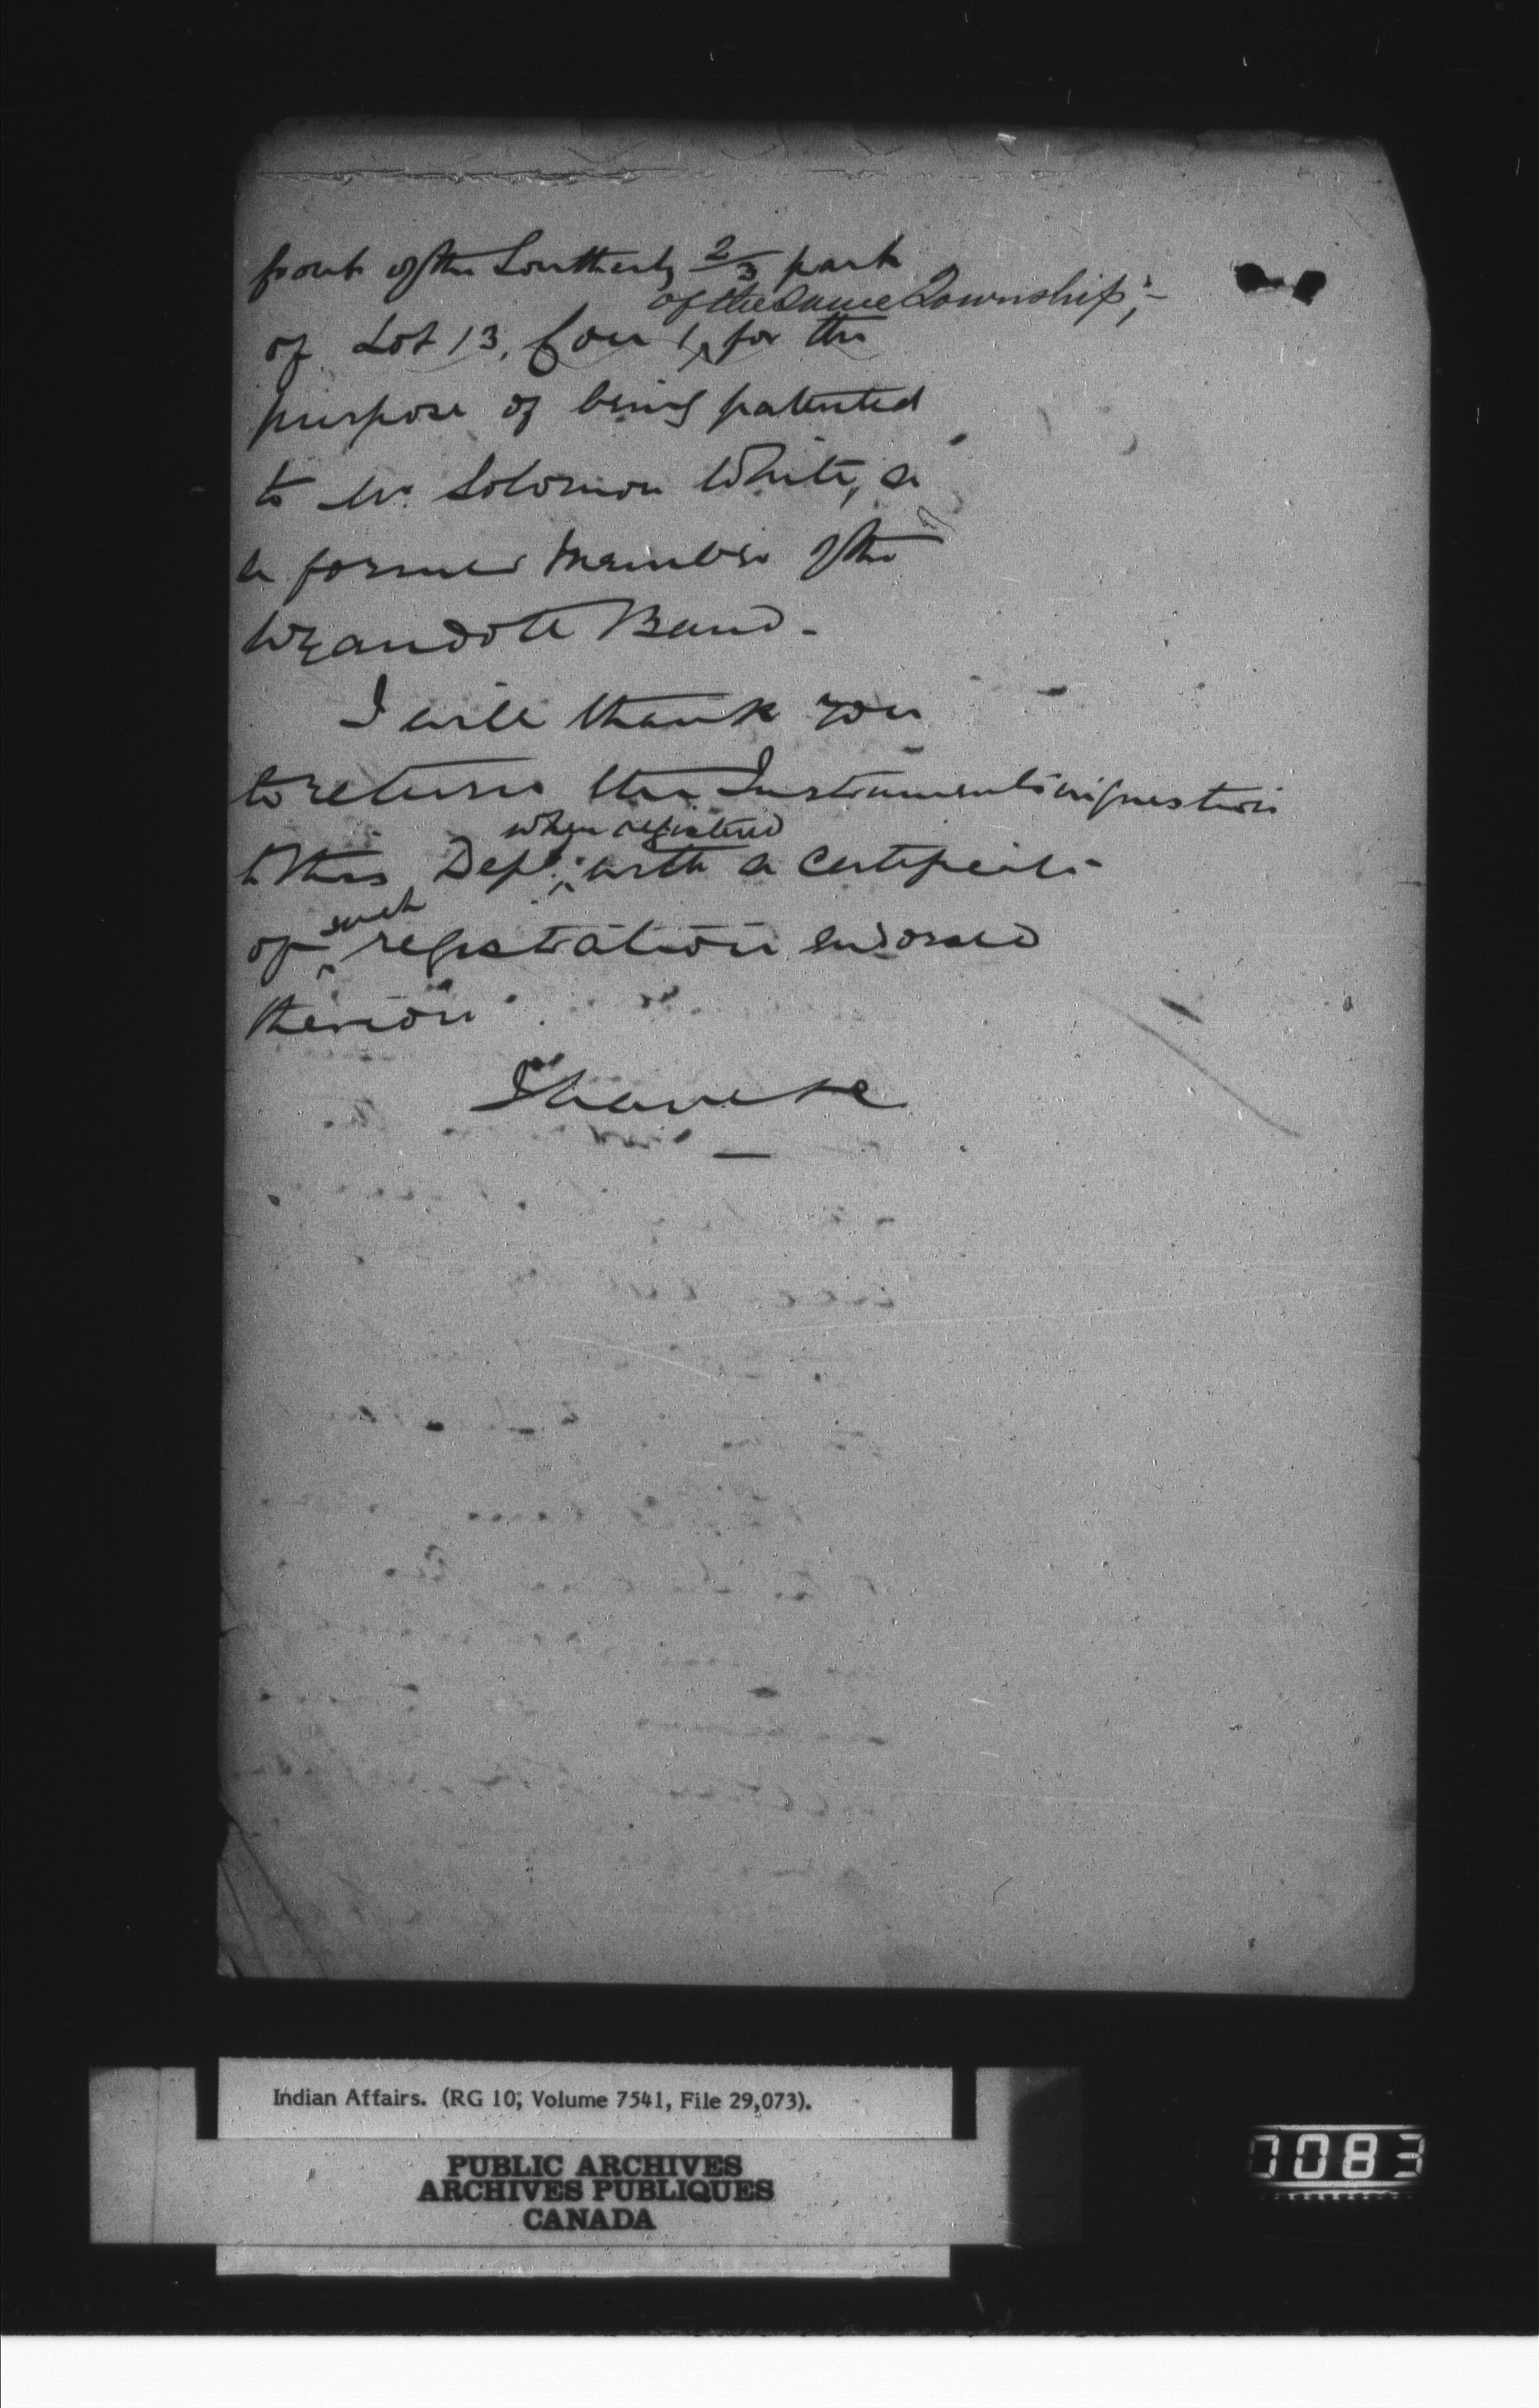 front of the Southerly 2/3 part
of the same Township;-
of Lot 13, Con 1, for the
purpose of being patented
to Mr. Solomon White, a
a former member of the
Wyandott Band-
I will thank you
to return the Instrument in question
when registered
to this Dept; with a certificate
such
of registration endorsed
thereon
Indian Affairs. (RG 10, Volume 7541, File 29,073).
PUBLIC ARCHIVES
ARCHIVES PUBLIQUES
CANADA
0083